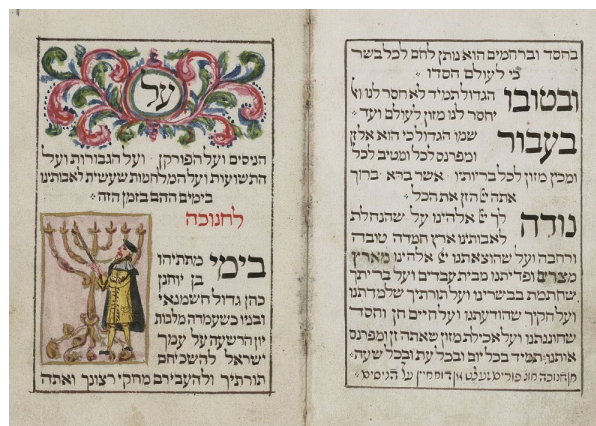 בחסד וברחמים הוא נותן לחם לכל בשר
כי לעולם חסדו
ובטובו הגדול תמיד לא חסר לנו וא
יחסר לנו מזון לעולם ועד
בעבור שמו הגדול כי הוא אל זן
ומפרנס לכל ומטיב לכל
ומכין מזון לכל בריותיו אשר ברא ברוך
אתה יי הזן את הכל
נודה לך יי אלהינו על שהנחלת
לאבותינו ארץ חמדה טובה
ורחבה ועל שהוצאתנו יי אלהינו מארץ
מצרים ופדיתנו מבית עבדים ועל בריתך
שחתמת בבשרינו ועל תורתיך שלמדתנו
ועל חקיך שהודעתנו ועל חיים חן וחסד
שחוננתנו ועל אכילת מזון שאתה זן ומפרנס
אותנו תמיד בכל יום ובכל עת ובכל שעה
על הניסים
על
הניסים ועל הפורקן ועל הגבורות ועל
התשועות ועל המלחמות שעשית לאבותינו
בימים ההם בזמן הזה
לחנוכה
בימי מתתיהו
בן יוחנן
כהן גדול חשמנאי
ובניו כשעמדה מלכות
יון הרשעה על עמך
ישראל להשכיחם
תורתיך ולהעבירם מחקי רצונך ואתה